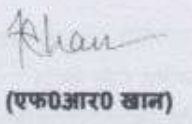 Khan
(एफ0आर0 खान)